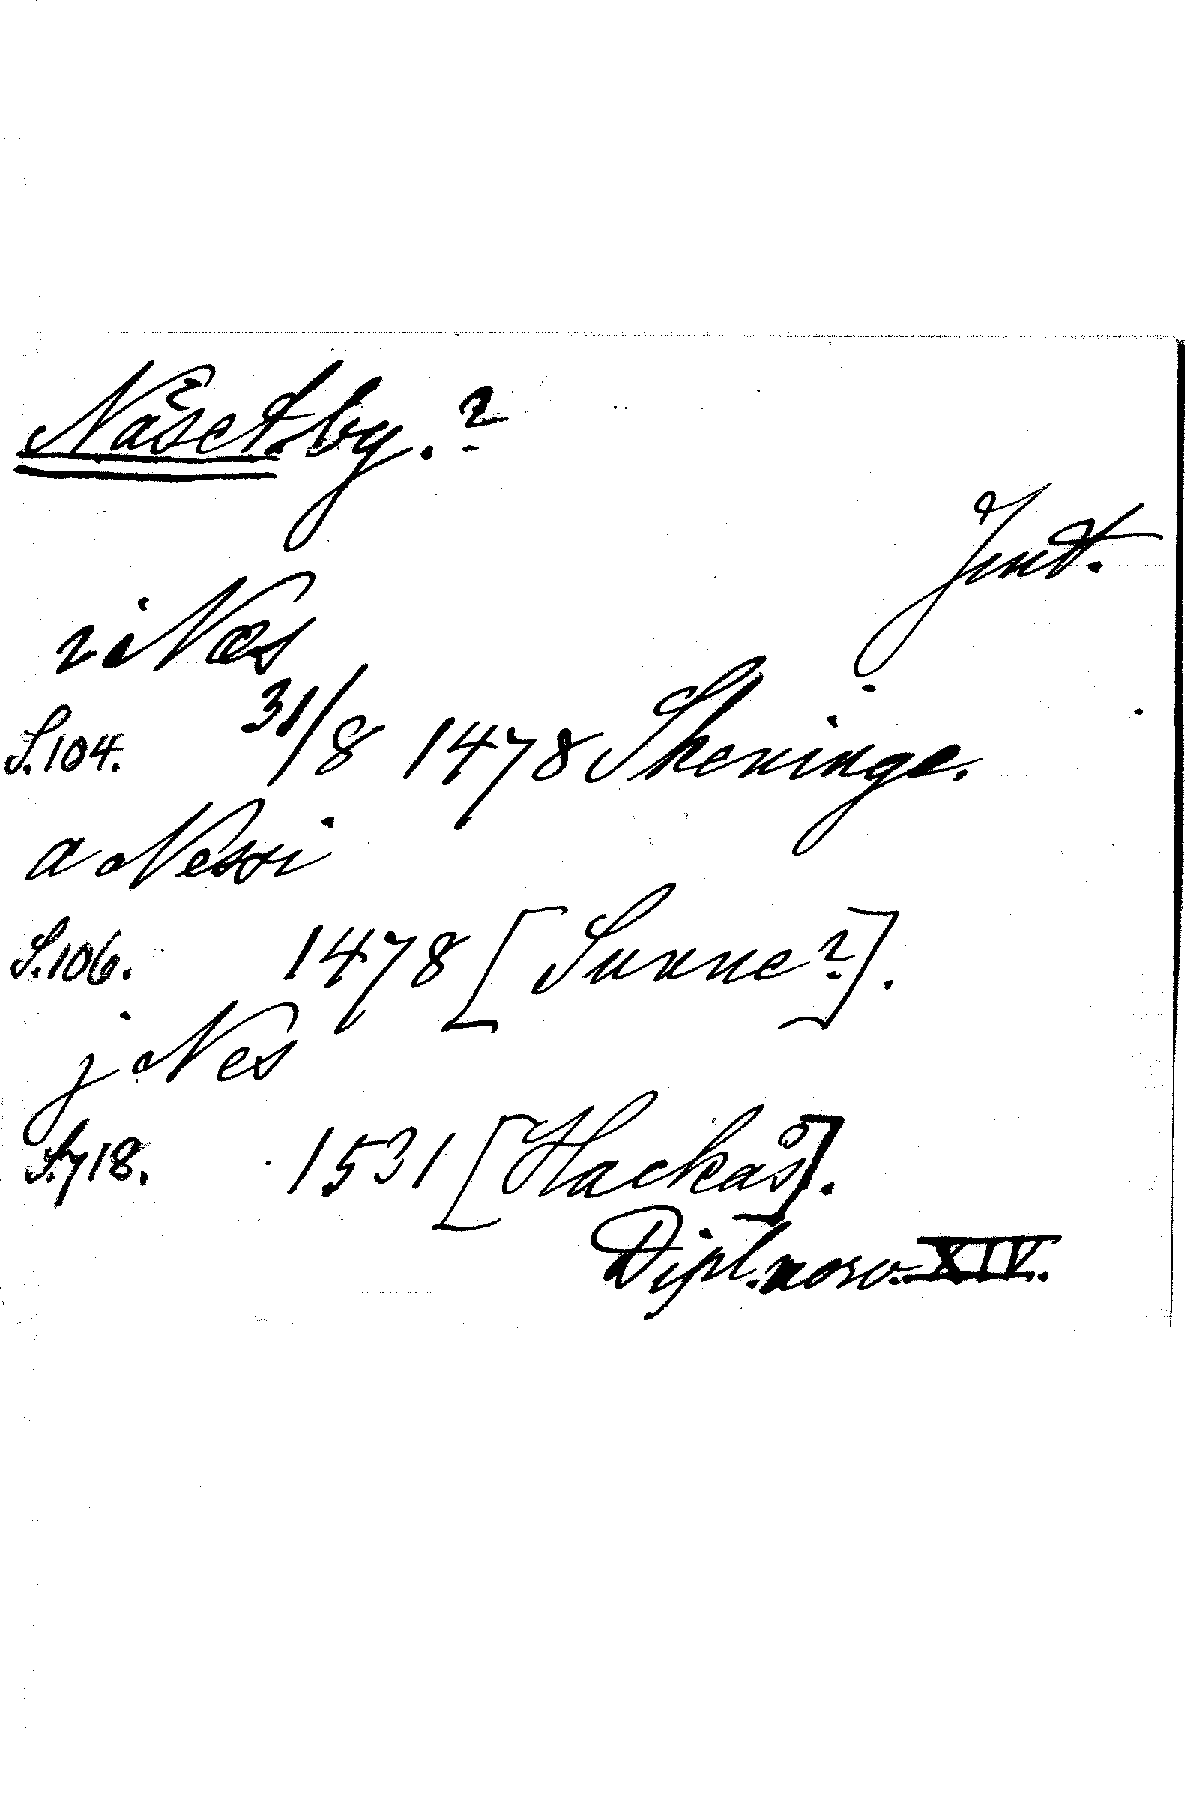 Näset. by. ?
Jmt.
i Næs
S. 104. 31/8 1478 Skeninge.
a Nessi
S. 106. 1478 [Sunne?].
j Nes
S. 718. 1531 [Hackås].
Dipl. norv. XIV.